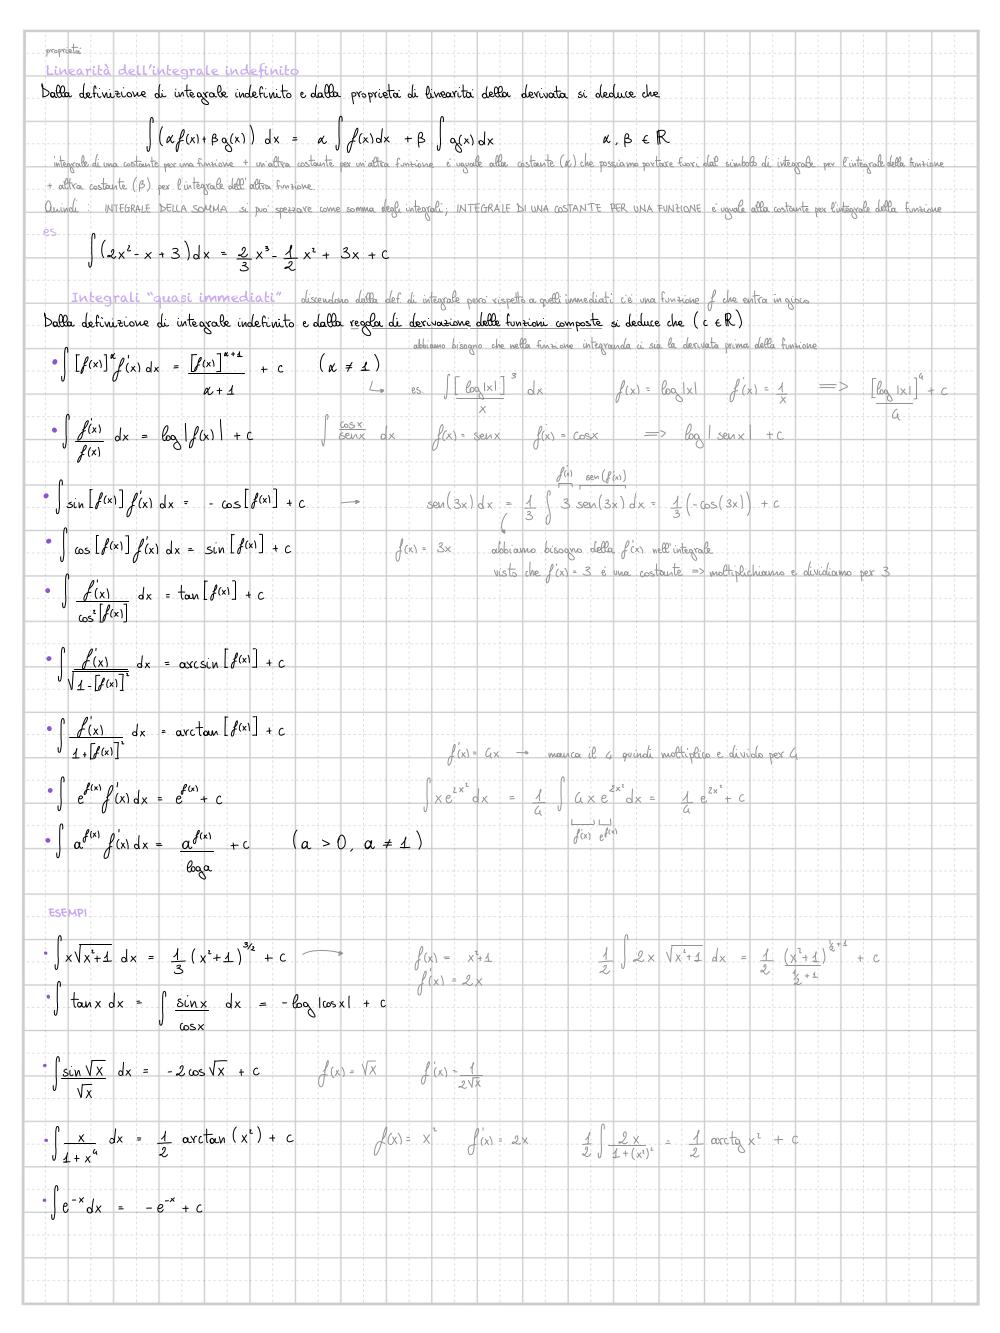 proprietà
Linearità dell'integrale indefinito
Dalla definizione di integrale indefinito e dalla proprietà di linearità della derivata si deduce che
∫(αf(x)+βg(x)) dx = α ∫f(x)dx + β ∫g(x)dx   α, β ∈ ℝ
integrale di una costante per una funzione + un'altra costante per un'altra funzione è uguale alla costante (α) che possiamo portare fuori dal simbolo di integrale per l'integrale della funzione
+ altra costante (β) per l'integrale dell'altra funzione
Quindi : INTEGRALE DELLA SOMMA si può spezzare come somma degli integrali; INTEGRALE DI UNA COSTANTE PER UNA FUNZIONE è uguale alla costante per l'integrale della funzione
es
∫(2x² - x + 3)dx = 2/3 x³ - 1/2 x² + 3x + c
Integrali "quasi immediati" discendono dalla def. di integrale però rispetto a quelli immediati c'è una funzione f che entra in gioco
Dalla definizione di integrale indefinito e dalla regola di derivazione delle funzioni composte si deduce che (c ∈ ℝ)
abbiamo bisogno che nella funzione integranda ci sia la derivata prima della funzione
• ∫[f(x)]^α f'(x) dx = [f(x)]^(α+1)/(α+1) + c   (α ≠ 1)
↳ es. ∫[log|x|]³/x dx   f(x) = log|x|   f'(x) = 1/x   =>   [log|x|]⁴/4 + c
• ∫ f'(x)/f(x) dx = log|f(x)| + c   ∫ cosx/senx dx   f(x) = senx   f'(x) = cosx   =>   log|senx| + c
f'(x)   sen(f(x))
• ∫sin[f(x)]f'(x) dx = - cos[f(x)] + c   →   sen(3x) dx = 1/3 ∫ 3 sen(3x) dx = 1/3(-cos(3x)) + c
• ∫cos[f(x)]f'(x) dx = sin[f(x)] + c   f(x) = 3x   abbiamo bisogno della f'(x) nell'integrale
visto che f'(x) = 3 è una costante => moltiplichiamo e dividiamo per 3
• ∫ f'(x)/cos²[f(x)] dx = tan[f(x)] + c
• ∫ f'(x)/√(1-[f(x)]²) dx = arcsin[f(x)] + c
• ∫ f'(x)/(1+[f(x)]²) dx = arctan[f(x)] + c
f'(x) = 4x → manca il 4 quindi moltiplico e divido per 4
• ∫ e^f(x) f'(x) dx = e^f(x) + c   ∫xe^(2x²) dx = 1/4 ∫ 4x e^(2x²) dx = 1/4 e^(2x²) + c
f'(x)   e^f(x)
• ∫ a^f(x) f'(x) dx = a^f(x)/loga + c   (a > 0, a ≠ 1)
ESEMPI
• ∫x√(x²+1) dx = 1/3 (x²+1)^(3/2) + c   →   f(x) = x²+1   1/2 ∫2x √(x²+1) dx = 1/2 (x²+1)^(1/2+1)/(1/2+1) + c
f'(x) = 2x
• ∫ tanx dx = ∫ sinx/cosx dx = -log|cosx| + c
• ∫ sin√x/√x dx = -2cos√x + c   f(x) = √x   f'(x) = 1/(2√x)
• ∫ x/(1+x⁴) dx = 1/2 arctan(x²) + c   f(x) = x²   f'(x) = 2x   1/2 ∫ 2x/(1+(x²)²) = 1/2 arctg x² + c
• ∫e^(-x) dx = -e^(-x) + c